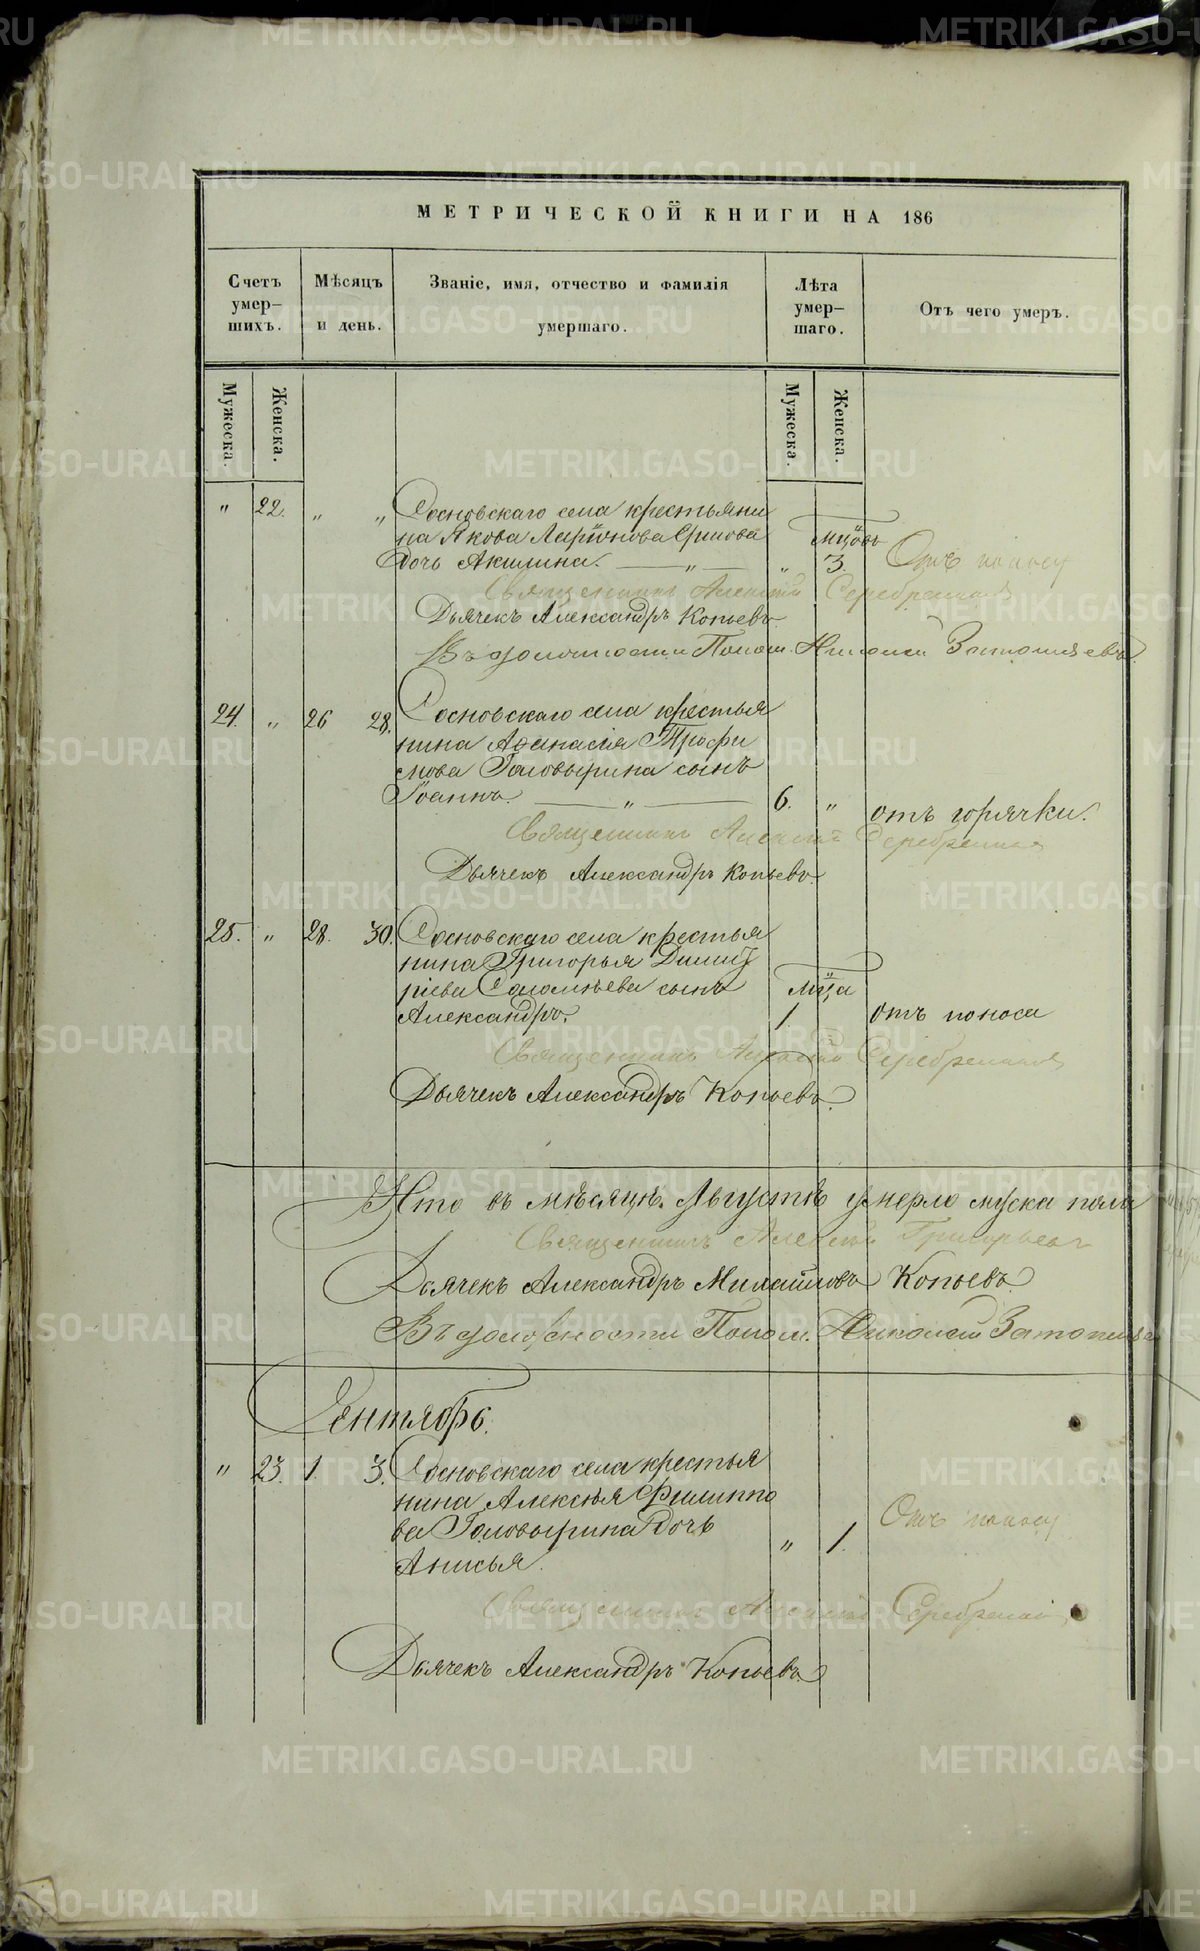 МЕТРИЧЕСКОЙ КНИГИ НА 186
Счетъ умер— шихъ.
Мѣсяцъ и день.
Званіе, имя, отчество и фамилія умершаго.
Лѣта умер— шаго.
Отъ чего умеръ.
Мужеска.
Женска.
Мужеска.
Женска.
" 22. " " Сосновскаго села крестьяни
на Якова Ларіонова дочь Акилина. — " — " мцовъ 3. Отъ поносу
Священникъ Алексій Серебренниковъ
Дьячекъ Александръ Копьевъ
Въ должности Поном. Николай
24. " 26 28. Сосновскаго села крестья
нина Афанасія Трофи
мова Головырина сынъ
Іоаннъ. — " — 6. " отъ горячки.
Священникъ Алексій Серебренниковъ
Дьячекъ Александръ Копьевъ.
25. " 28. 30. Сосновскаго села крестья
нина Григорья Димит
ріева Соломѣева сынъ мца
Александръ. 1. отъ поноса
Священникъ Алексій Серебренниковъ
Дьячекъ Александръ Копьевъ.
Что въ мѣсяцѣ Августѣ умерло муска пола
Священникъ Алексій Григорьевъ
Дьячекъ Александръ Михайловъ Копьевъ
Въ должности Поном. Николай
Сентябрь.
" 23. 1. 3. Сосновскаго села крестья
нина Алексѣя Филиппо
ва Головырина дочь " 1. Отъ поносу
Анисья.
Священникъ Алексій Серебренниковъ
Дьячекъ Александръ Копьевъ
METRIKI.GASO-URAL.RU